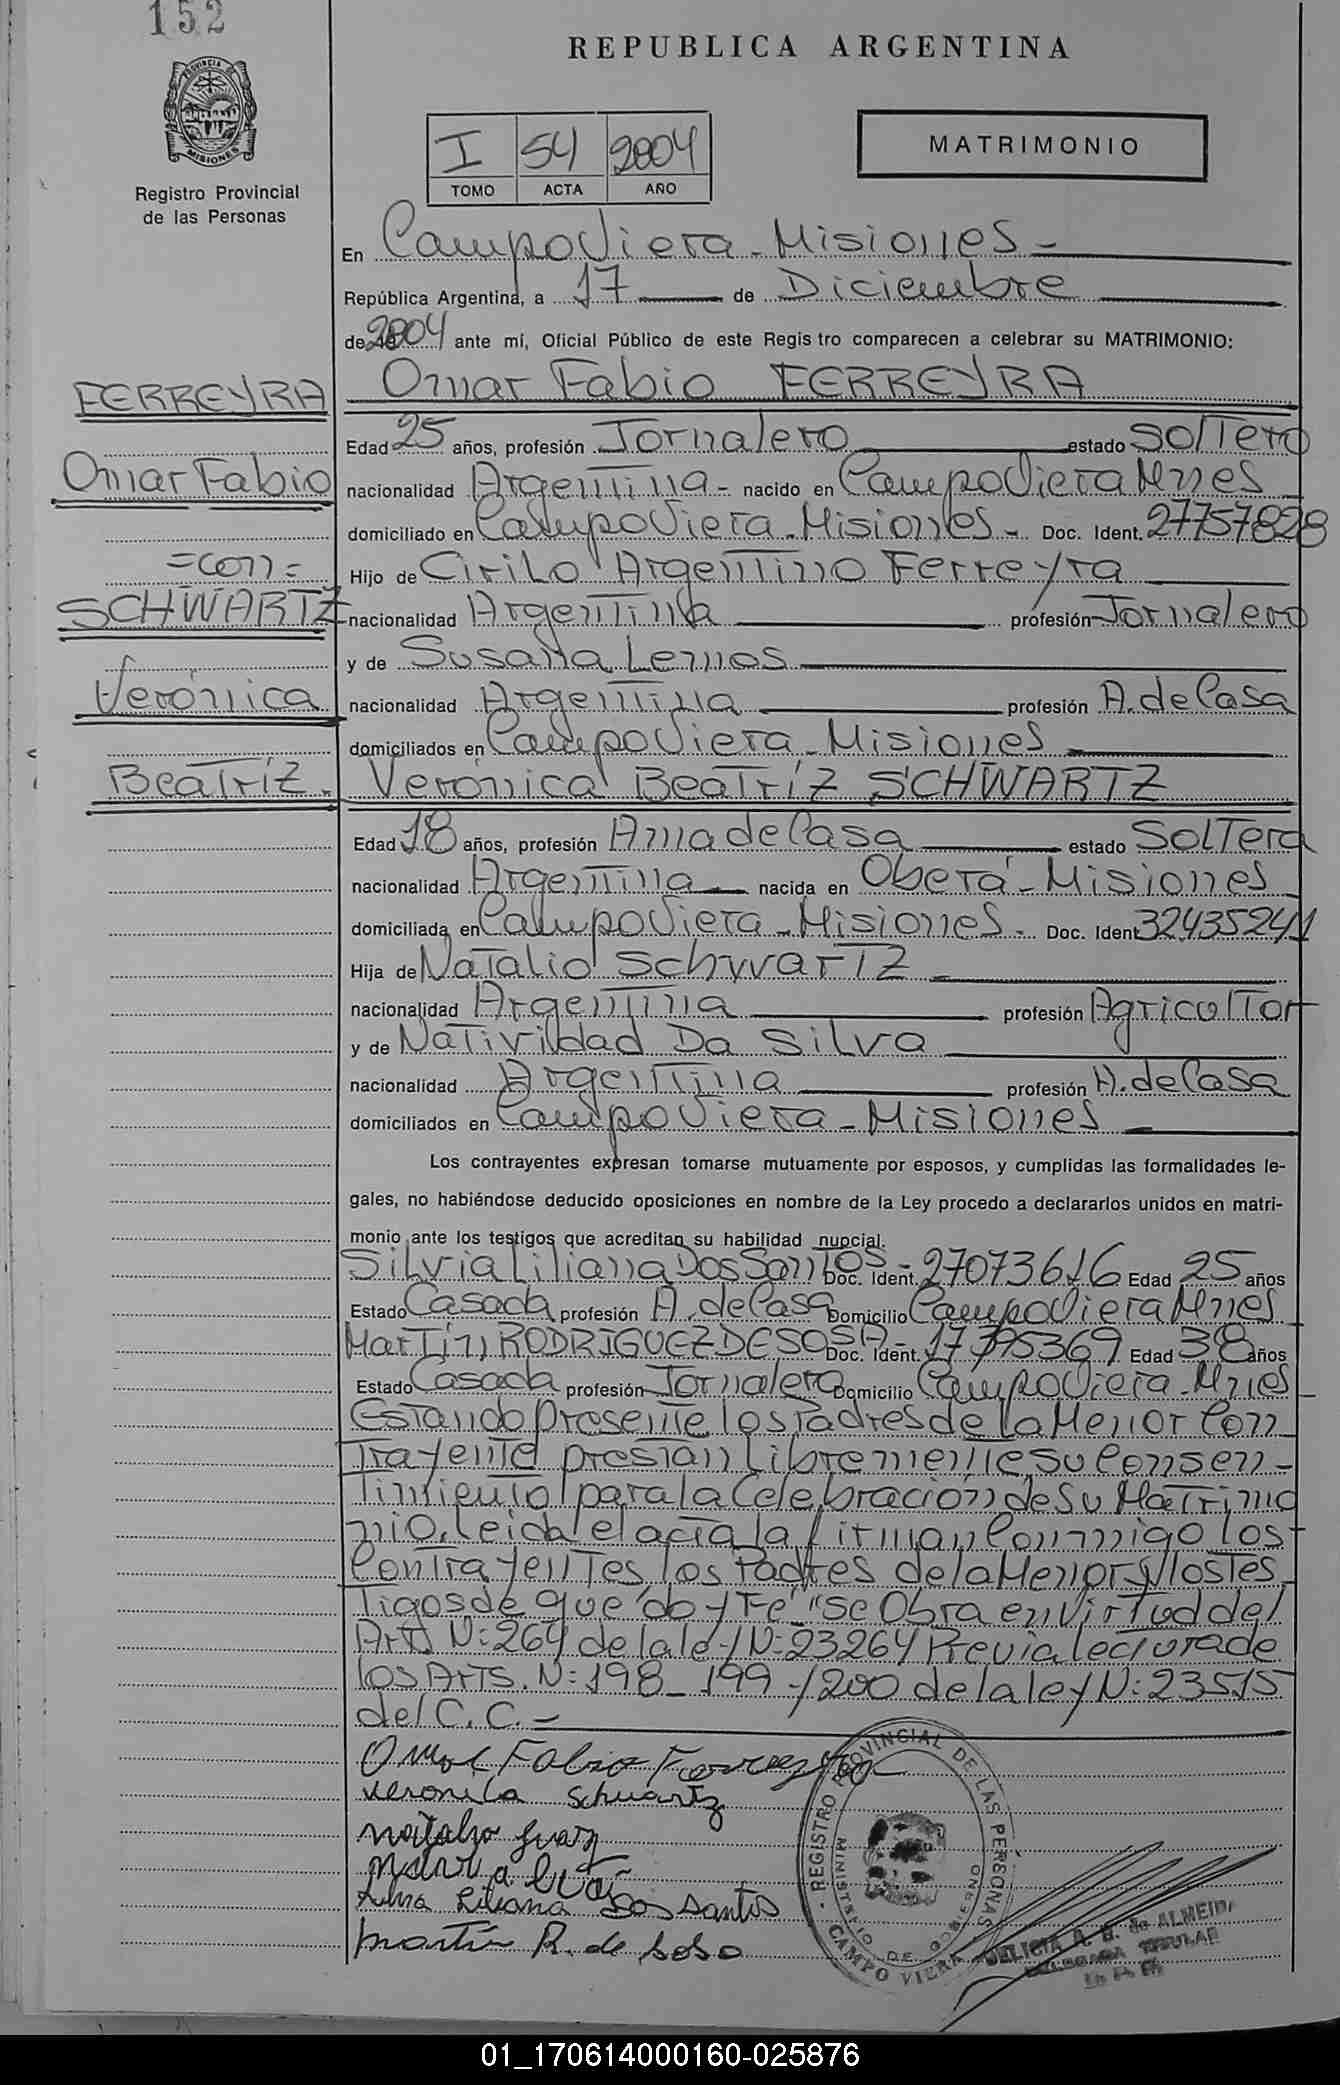 152
REPUBLICA ARGENTINA
PROVINCIA DE MISIONES
Registro Provincial
de las Personas
I 54 2004
TOMO ACTA AÑO
MATRIMONIO
En Campo Viera - Misiones -
República Argentina, a 17 de Diciembre
de 2004 ante mí, Oficial Público de este Regis tro comparecen a celebrar su MATRIMONIO:
FERREYRA
Omar Fabio
=con=
SCHWARTZ
Verónica
Beatríz.
Omar Fabio FERREYRA
Edad 25 años, profesión Jornalero estado Soltero
nacionalidad Argentina - nacido en Campo Viera Mnes
domiciliado en Campo Viera - Misiones - Doc. Ident. 27757828
Hijo de Cirilo Argentino Ferreyra
nacionalidad Argentina profesión Jornalero
y de Susana Lemos
nacionalidad Argentina profesión A. de Casa
domiciliados en Campo Viera - Misiones
Verónica Beatríz SCHWARTZ
Edad 18 años, profesión Ama de Casa estado Soltera
nacionalidad Argentina nacida en Oberá - Misiones
domiciliada en Campo Viera - Misiones - Doc. Ident 32435241
Hija de Natalio Schwartz
nacionalidad Argentina profesión Agricultor
y de Natividad Da Silva
nacionalidad Argentina profesión A. de Casa
domiciliados en Campo Viera - Misiones
Los contrayentes expresan tomarse mutuamente por esposos, y cumplidas las formalidades le-
gales, no habiéndose deducido oposiciones en nombre de la Ley procedo a declararlos unidos en matri-
monio ante los testigos que acreditan su habilidad nupcial.
Silvia Liliana Dos Santos - Doc. Ident. 27073616 Edad 25 años
Estado Casada profesión A. de Casa Domicilio Campo Viera Mnes
Martín RODRIGUEZ DE SOSA - Doc. Ident. 17395369 Edad 38 años
Estado Casada profesión Jornalero Domicilio Campo Viera - Mnes
Estando presente los Padres de la Menor Con
Trayente prestan Libremente su Consen-
Timiento para la Celebración de su Matrimo
nio. Leida el acta la firman Conmigo los
Contrayentes los Padres de la Menor y los Tes
Tigos de que doy Fe "Se Obra en virtud del
Art N: 264 de la ley N: 23264 Previa lectura de
los Arts. N: 198 - 199 - y 200 de la ley N: 23515
del C. C. -
Omar Fabio Ferreyra
Veronica Schwartz
Liliana Dos Santos
Martín R. de Sosa
REGISTRO PROVINCIAL DE LAS PERSONAS
MINISTERIO DE GOBIERNO
CAMPO VIERA
DELICIA A. B. de ALMEIDA
DELEGADA TITULAR
01_170614000160-025876